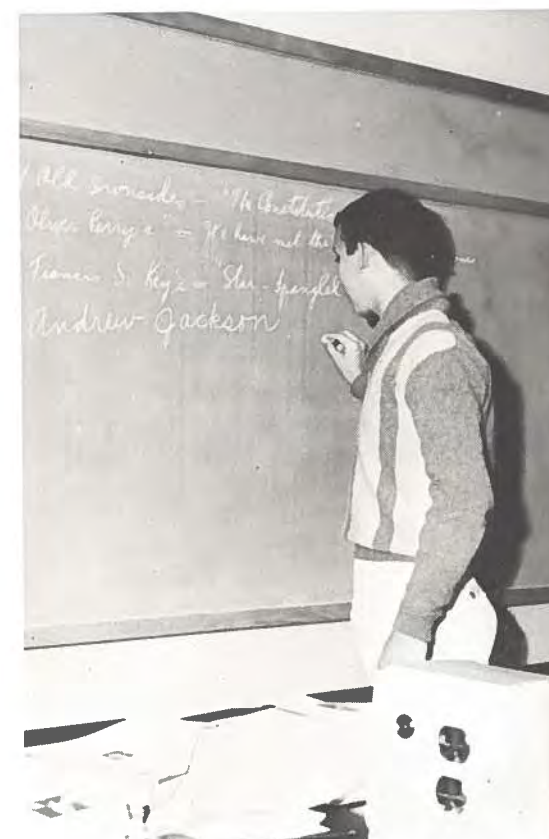 Old Ironsides – "The Constitution
Oliver Perry's" – We have met the
Francis S. Key's – "Star-Spangled
Andrew Jackson